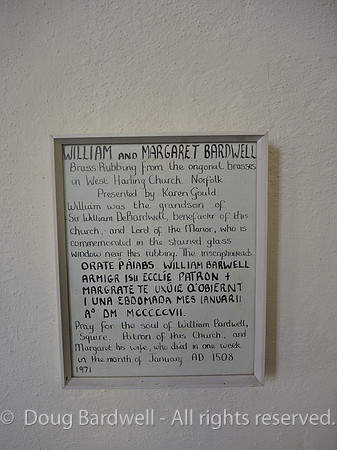 WILLIAM AND MARGARET BARDWELL
Brass Rubbing from the origonal brasses
in West Harling Church Norfolk
Presented by Karen Gould
William was the grandson of
Sir William DeBardwell, benefactor of this
church, and Lord of the Manor, who is
commemorated in the stained glass
window near this rubbing. The inscription reads
ORATE PAIABS WILLIAM BARWELL
ARMIGR ISII ECCLIE PATRON +
MARGRATE TE UXUIE Q'OBIERNT
I UNA EBDOMADA MES IANUARII
A° DM MCCCCCVII.
Pray for the soul of William Bardwell,
Squire. Patron of this Church, and
Margaret his wife, who died in one week
in the month of January AD 1508
1971
© Doug Bardwell - All rights reserved.